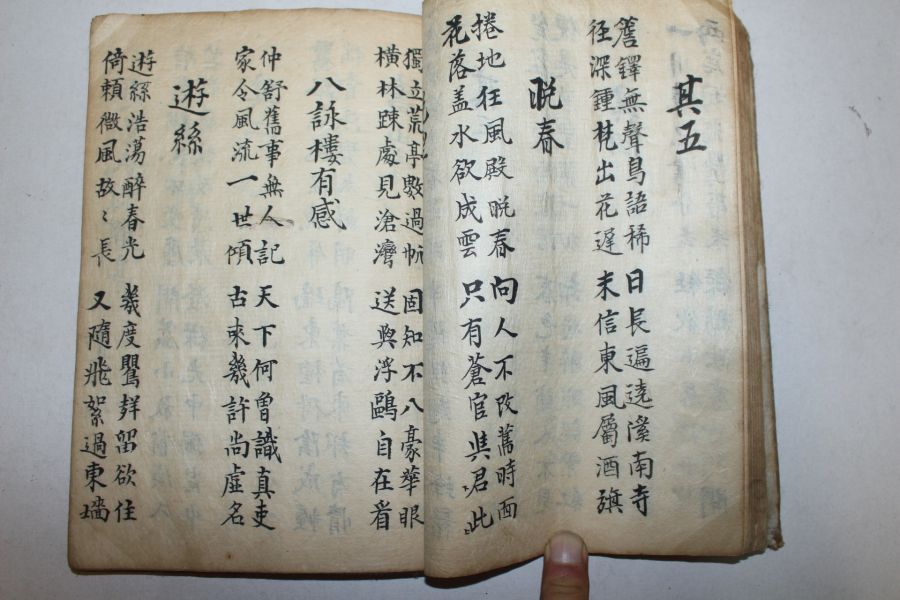 其五
簷鐸無聲鳥語稀 日長遍遶溪南寺
徑深鍾梵出花遲 未信東風屬酒旗
晩春
捲地狂風殿晩春 向人不改舊時面
花落盖水欲成雲 只有蒼官與君此
獨立荒亭數過帆 固知不八豪華眼
橫林踈處見滄灣 送與浮鷗自在看
八詠樓有感
仲舒舊事無人記 天下何曾識真吏
家令風流一世傾 古來幾許尚虛名
遊絲
遊絲浩蕩醉春光 幾度鸎群留欲住
倚頼微風故〻長 又隨飛絮過東墻